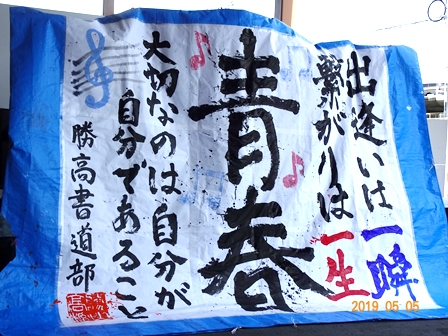 出逢いは一瞬
繋がりは一生
青春
大切なのは自分が
自分であること
勝高書道部
2019.05.05